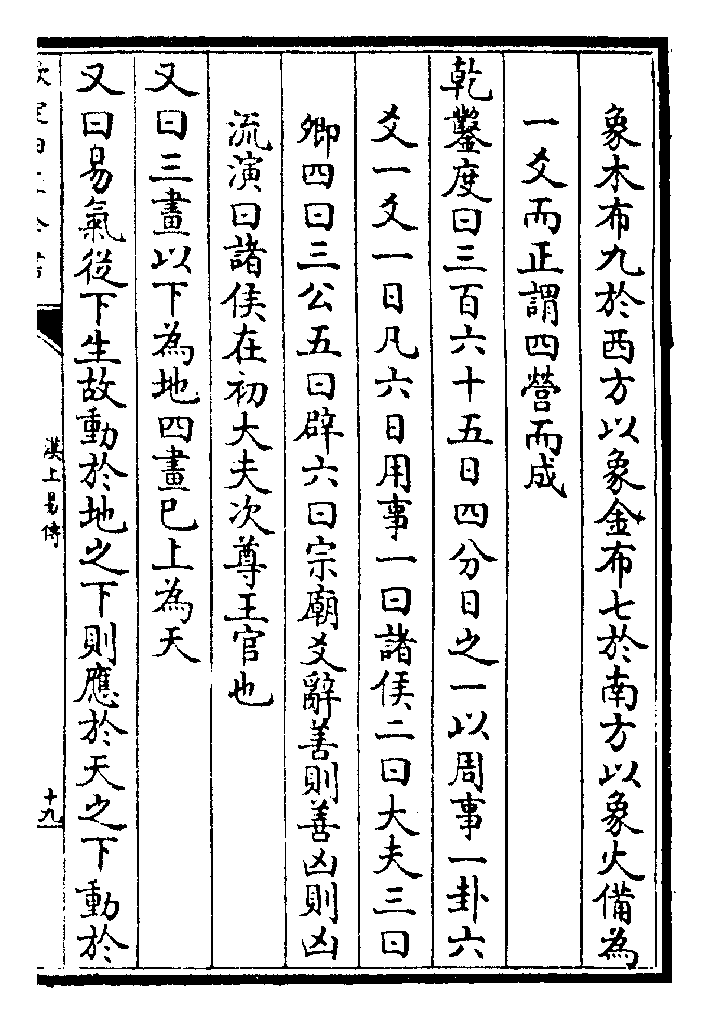 象木布九於西方以象金布七於南方以象火備為
一爻而正謂四營而成
乾鑿度曰三百六十五日四分日之一以周事一卦六
爻一爻一日凡六日用事一曰諸侯二曰大夫三曰
卿四曰三公五曰辟六曰宗廟爻辭善則善凶則凶
流演曰諸侯在初大夫次尊王官也
又曰三畫以下為地四畫已上為天
又曰易氣從下生故動於地之下則應於天之下動於
漢上易傳
十九